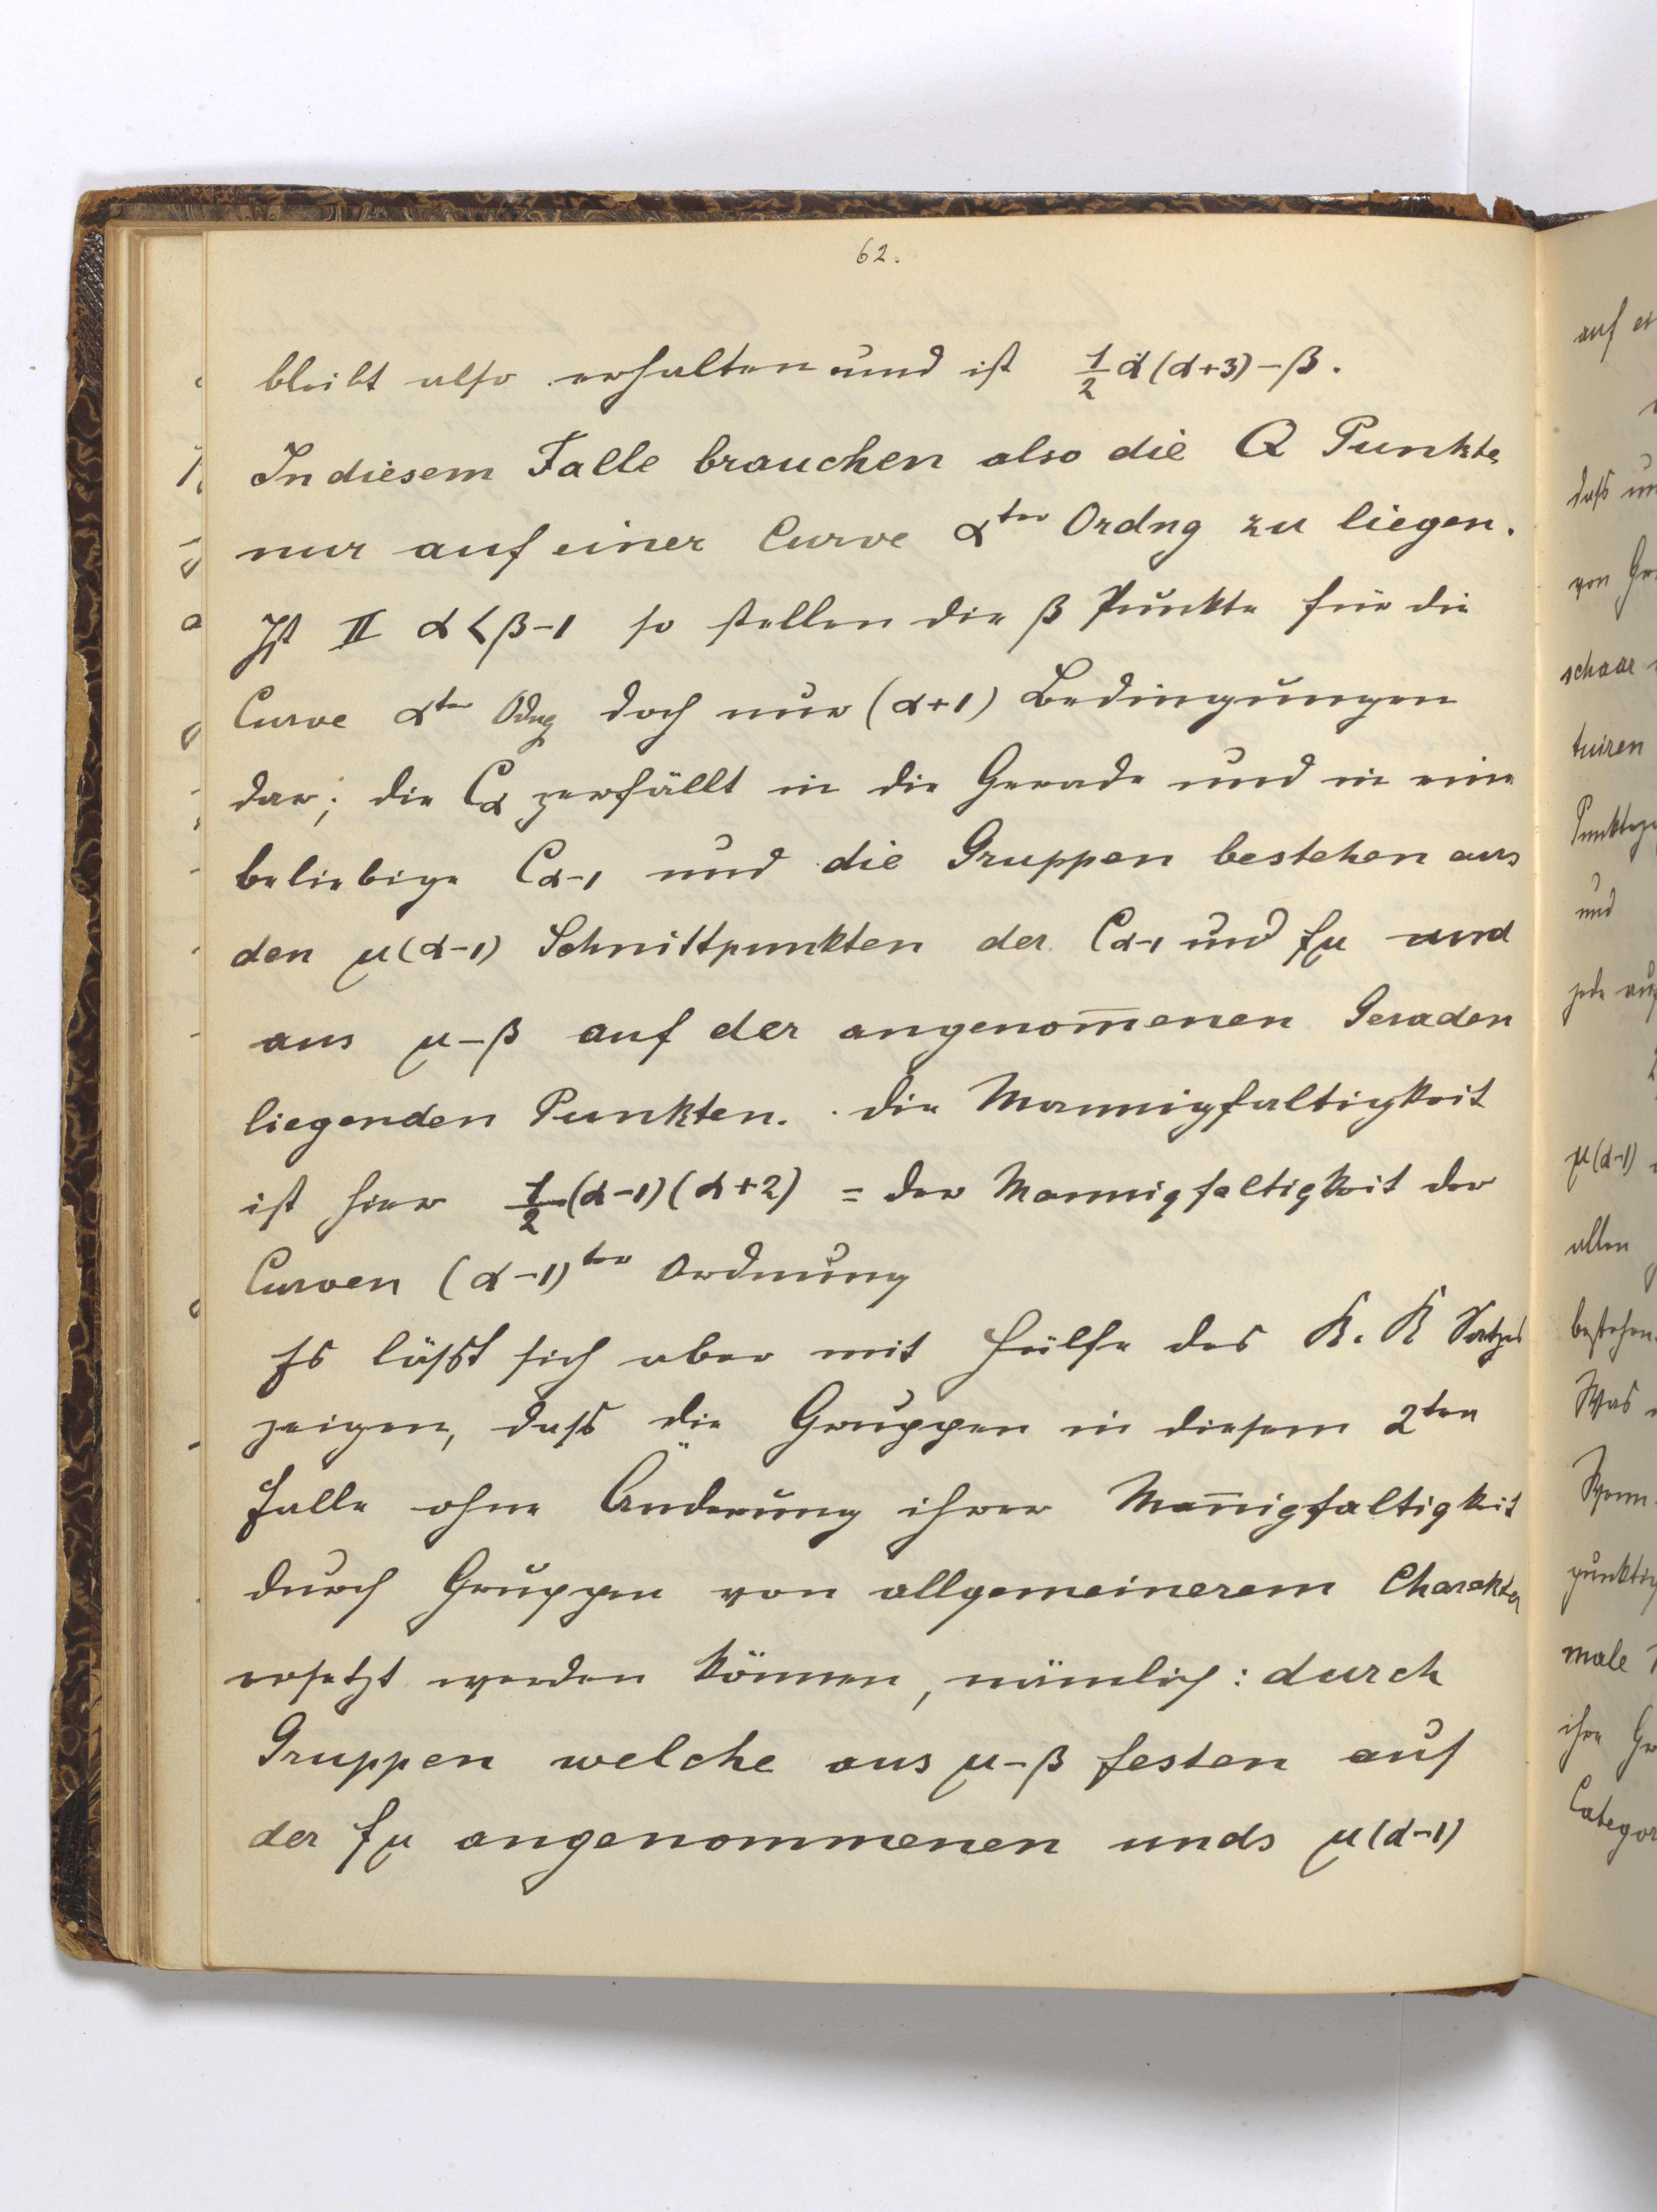 62.
bleibt also erhalten und ist ½ α(α+3)-β.
In diesem Falle brauchen also die Q Punkte
nur auf einer Curve α^ter Ordng zu liegen.
Ist II α<β-1 so stellen die β Punkte für die
Curve α^ter Odng doch nur (α+1) Bedingungen
dar; die C_α zerfällt in die Gerade und in eine
beliebige C_α-1 und die Gruppen bestehen aus
den μ(α-1) Schnittpunkten der C_α-1 und f_μ und
aus μ-β auf der angenom̅enen Geraden
liegenden Punkten. Die Mannigfaltigkeit
ist hier ½(α-1)(α+2) = der Mannigfaltigkeit der
Curven (α-1)^ter Ordnung
Es läßt sich aber mit Hülfe des R. R Satzes
zeigen, daß die Gruppen in diesem 2^ten
Falle ohne Änderung ihrer Man̅igfaltigkeit
durch Gruppen von allgemeinerem Charakter
ersetzt werden können, nämlich: durch
Gruppen welche aus μ-β festen auf
der f_μ angenommenen und μ(α-1)
auf
daß
von
schaar
tuiren
und
jede auf
μ(α-1)
allen
bestehen.
Was
male
ihre